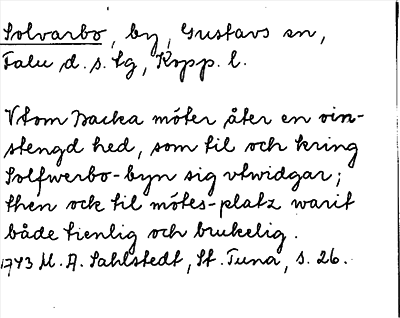 Solvarbo, by, Gustavs sn,
Falu d.s. lg, Kopp. l.
Vtom Backa möter åter en oin-
stengd hed, som til och kring
Solfwerbo-byn sig vtwidgar;
then ock til mötes-platz warit
både tienlig och brukelig.
1743 M. A. Sahlstedt, St. Tuna, s. 26.